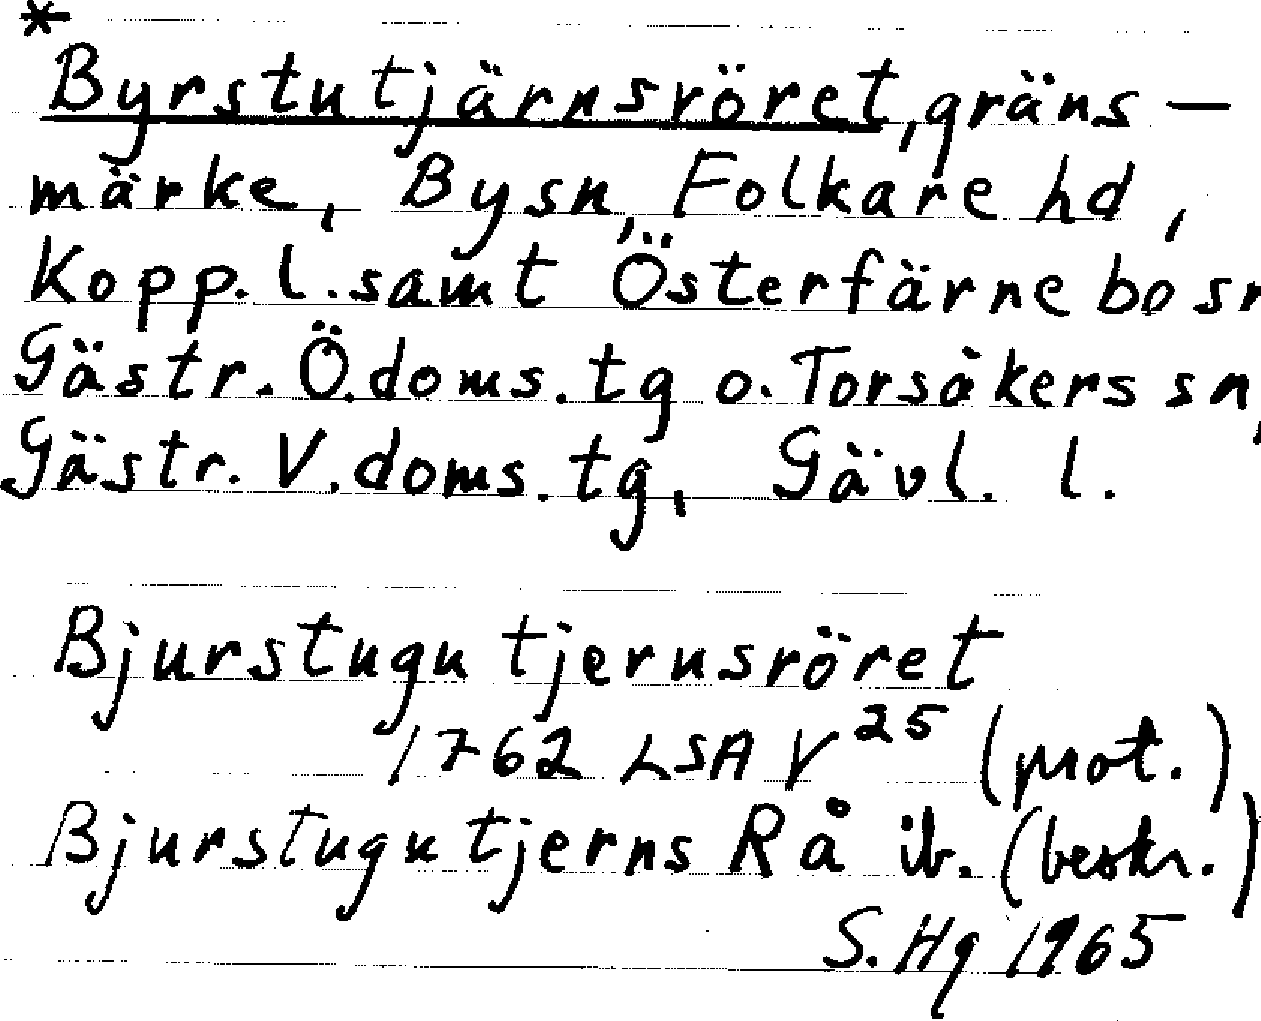 *
Byrstutjärnsröret, gräns-
märke, By sn, Folkare hd,
Kopp. l. samt Österfärnebo sn
Gästr. Ö. doms. tg o. Torsåkers sn,
Gästr. V. doms. tg, Gävl. l.
Bjurstugutjernsröret
1762 LSA V 25 (prot.)
Bjurstugutjerns Rå ib. (beskr.)
S. Hg 1965